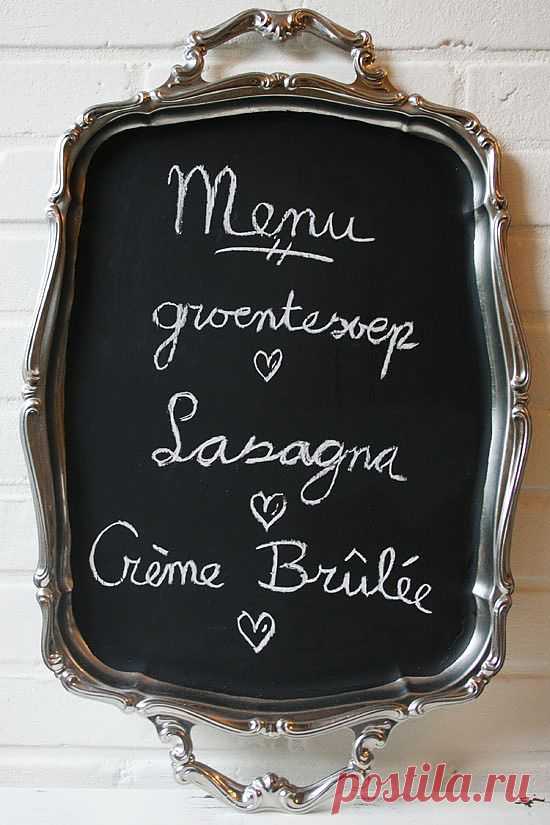 Menu
groentesoep
Lasagna
Crème Brûlée
postila.ru